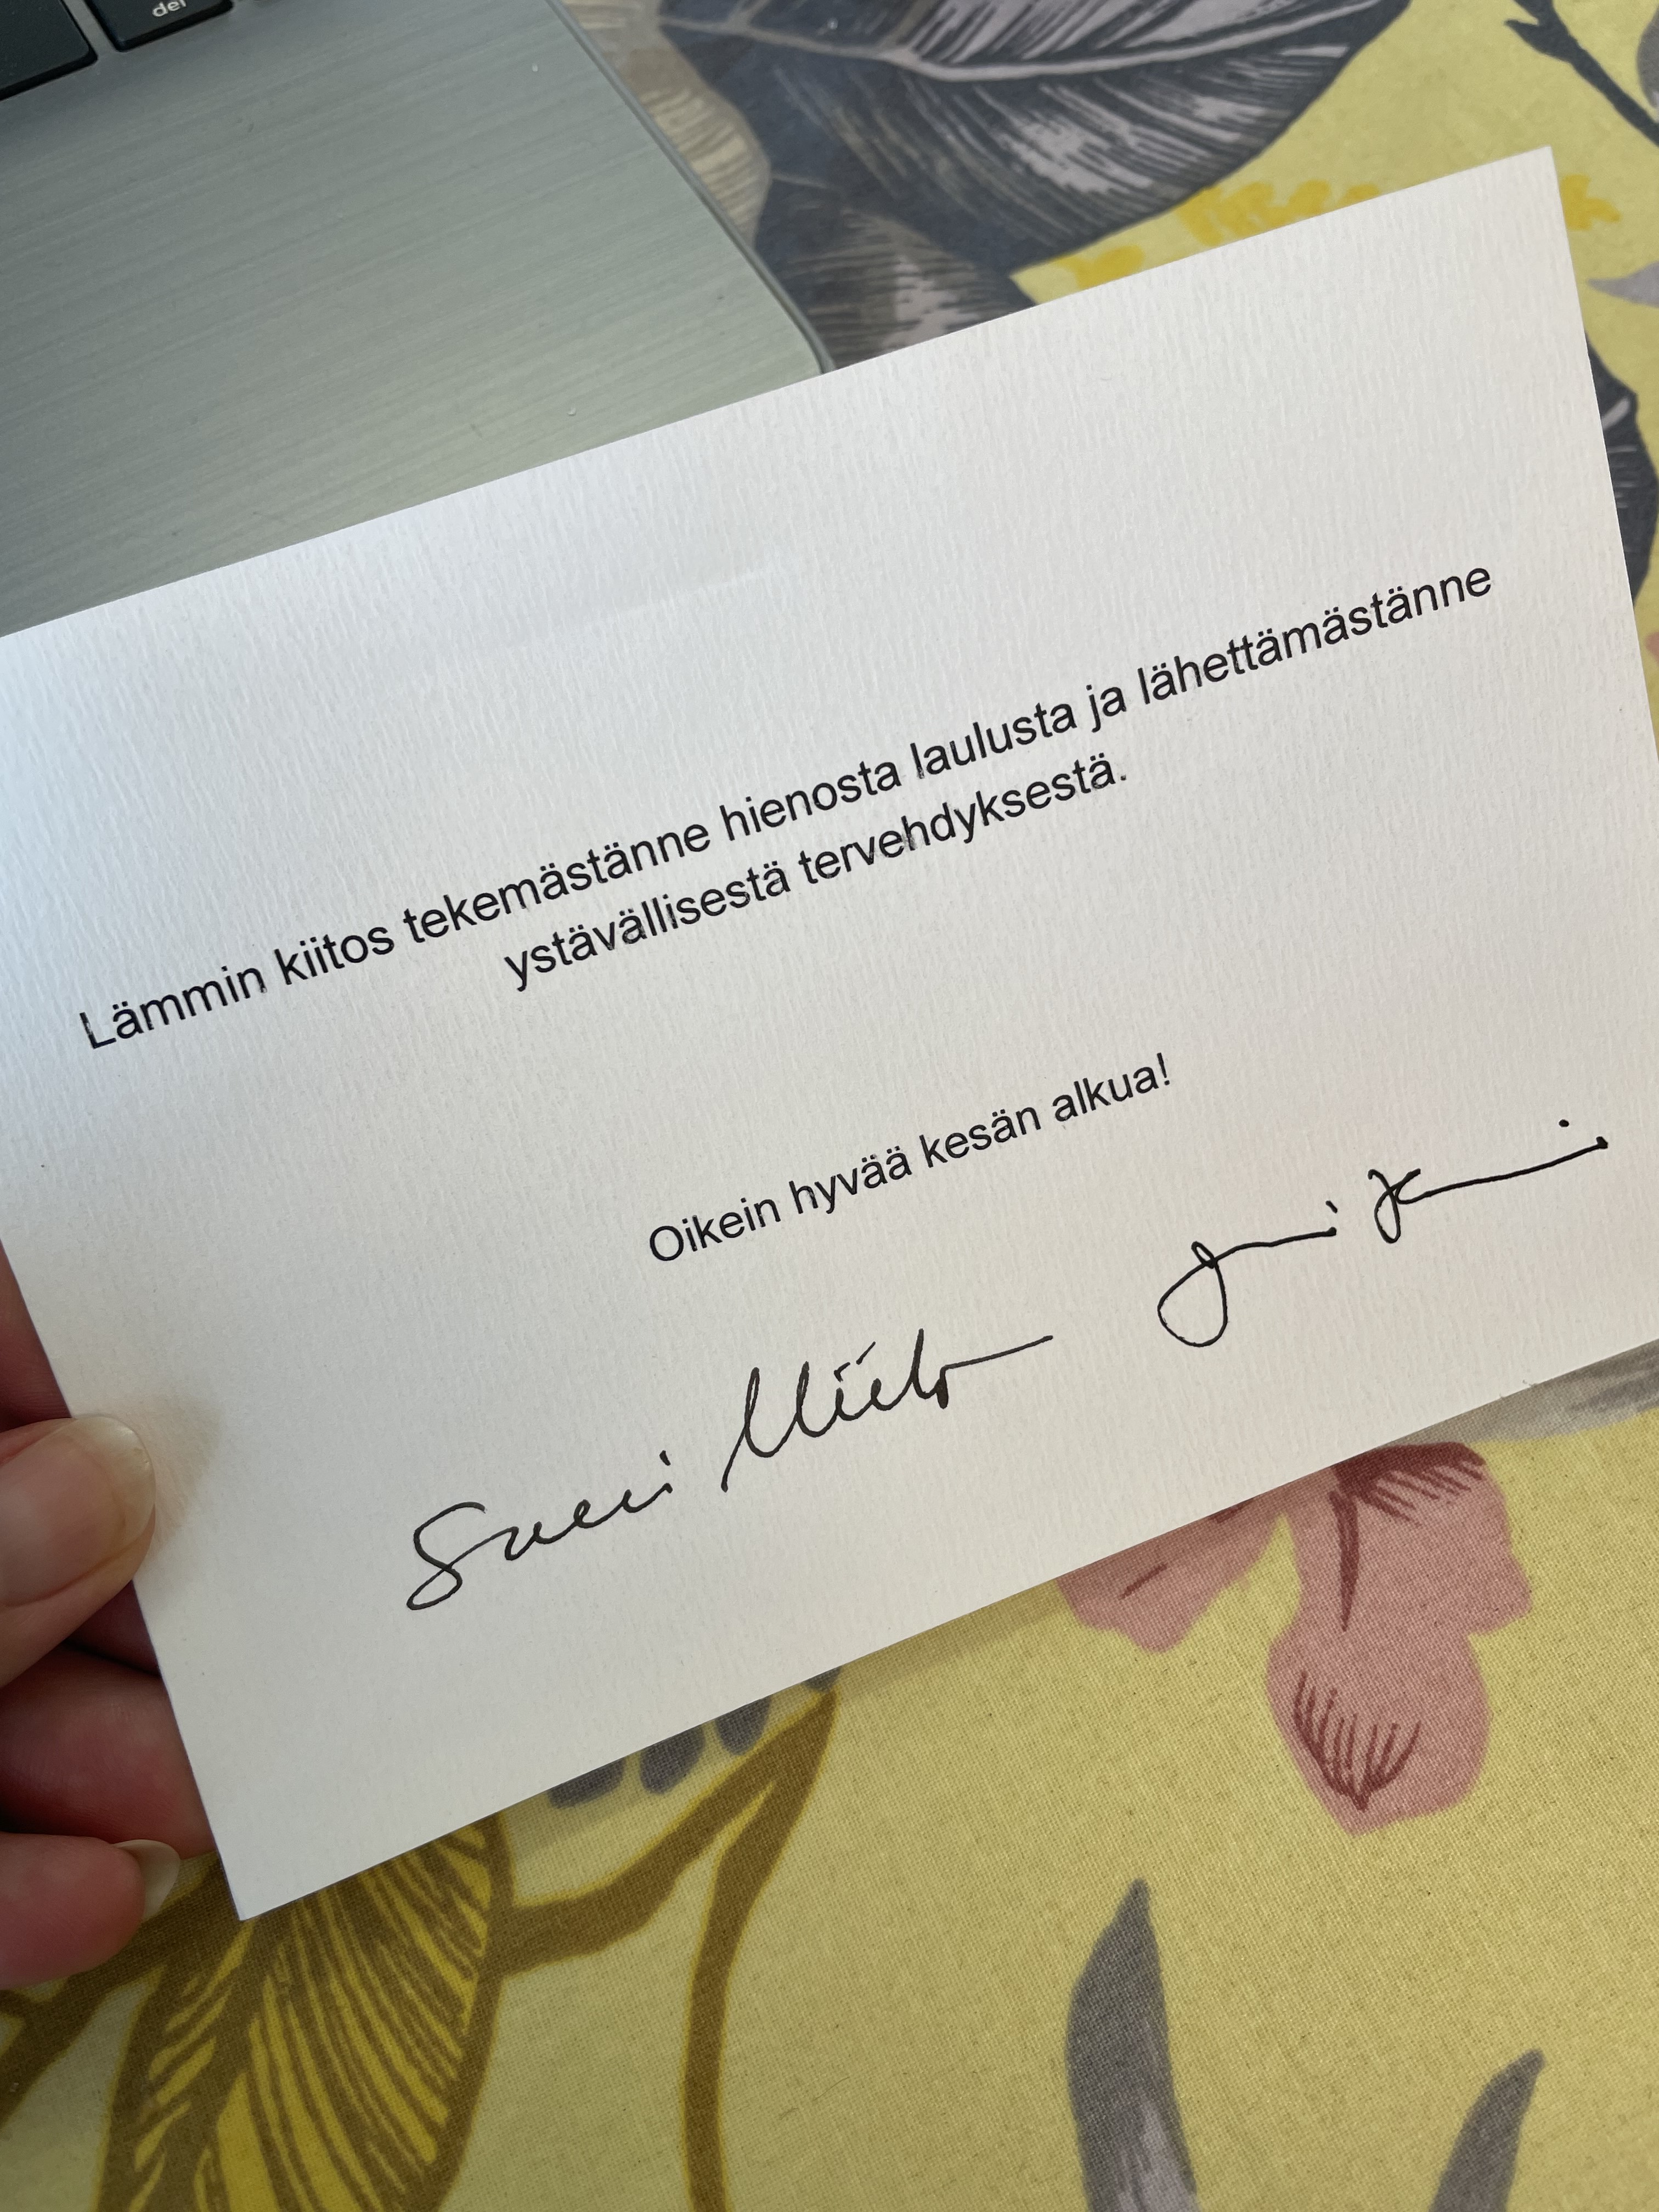 del
Lämmin kiitos tekemästänne hienosta laulusta ja lähettämästänne
ystävällisestä tervehdyksestä.
Oikein hyvää kesän alkua!